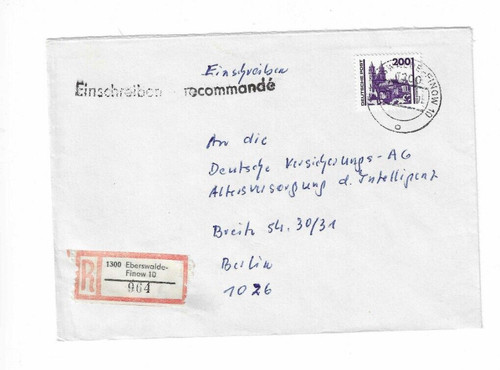 Einschreiben
Einschreiben recommandé
200
DEUTSCHE POST
1300
FINOW 10
An die
Deutsche Versicherungs-AG
Altersversorgung d. Intelligenz
Breite Str. 30/31
Berlin
1026
R
1300 Eberswalde-
Finow 10
964